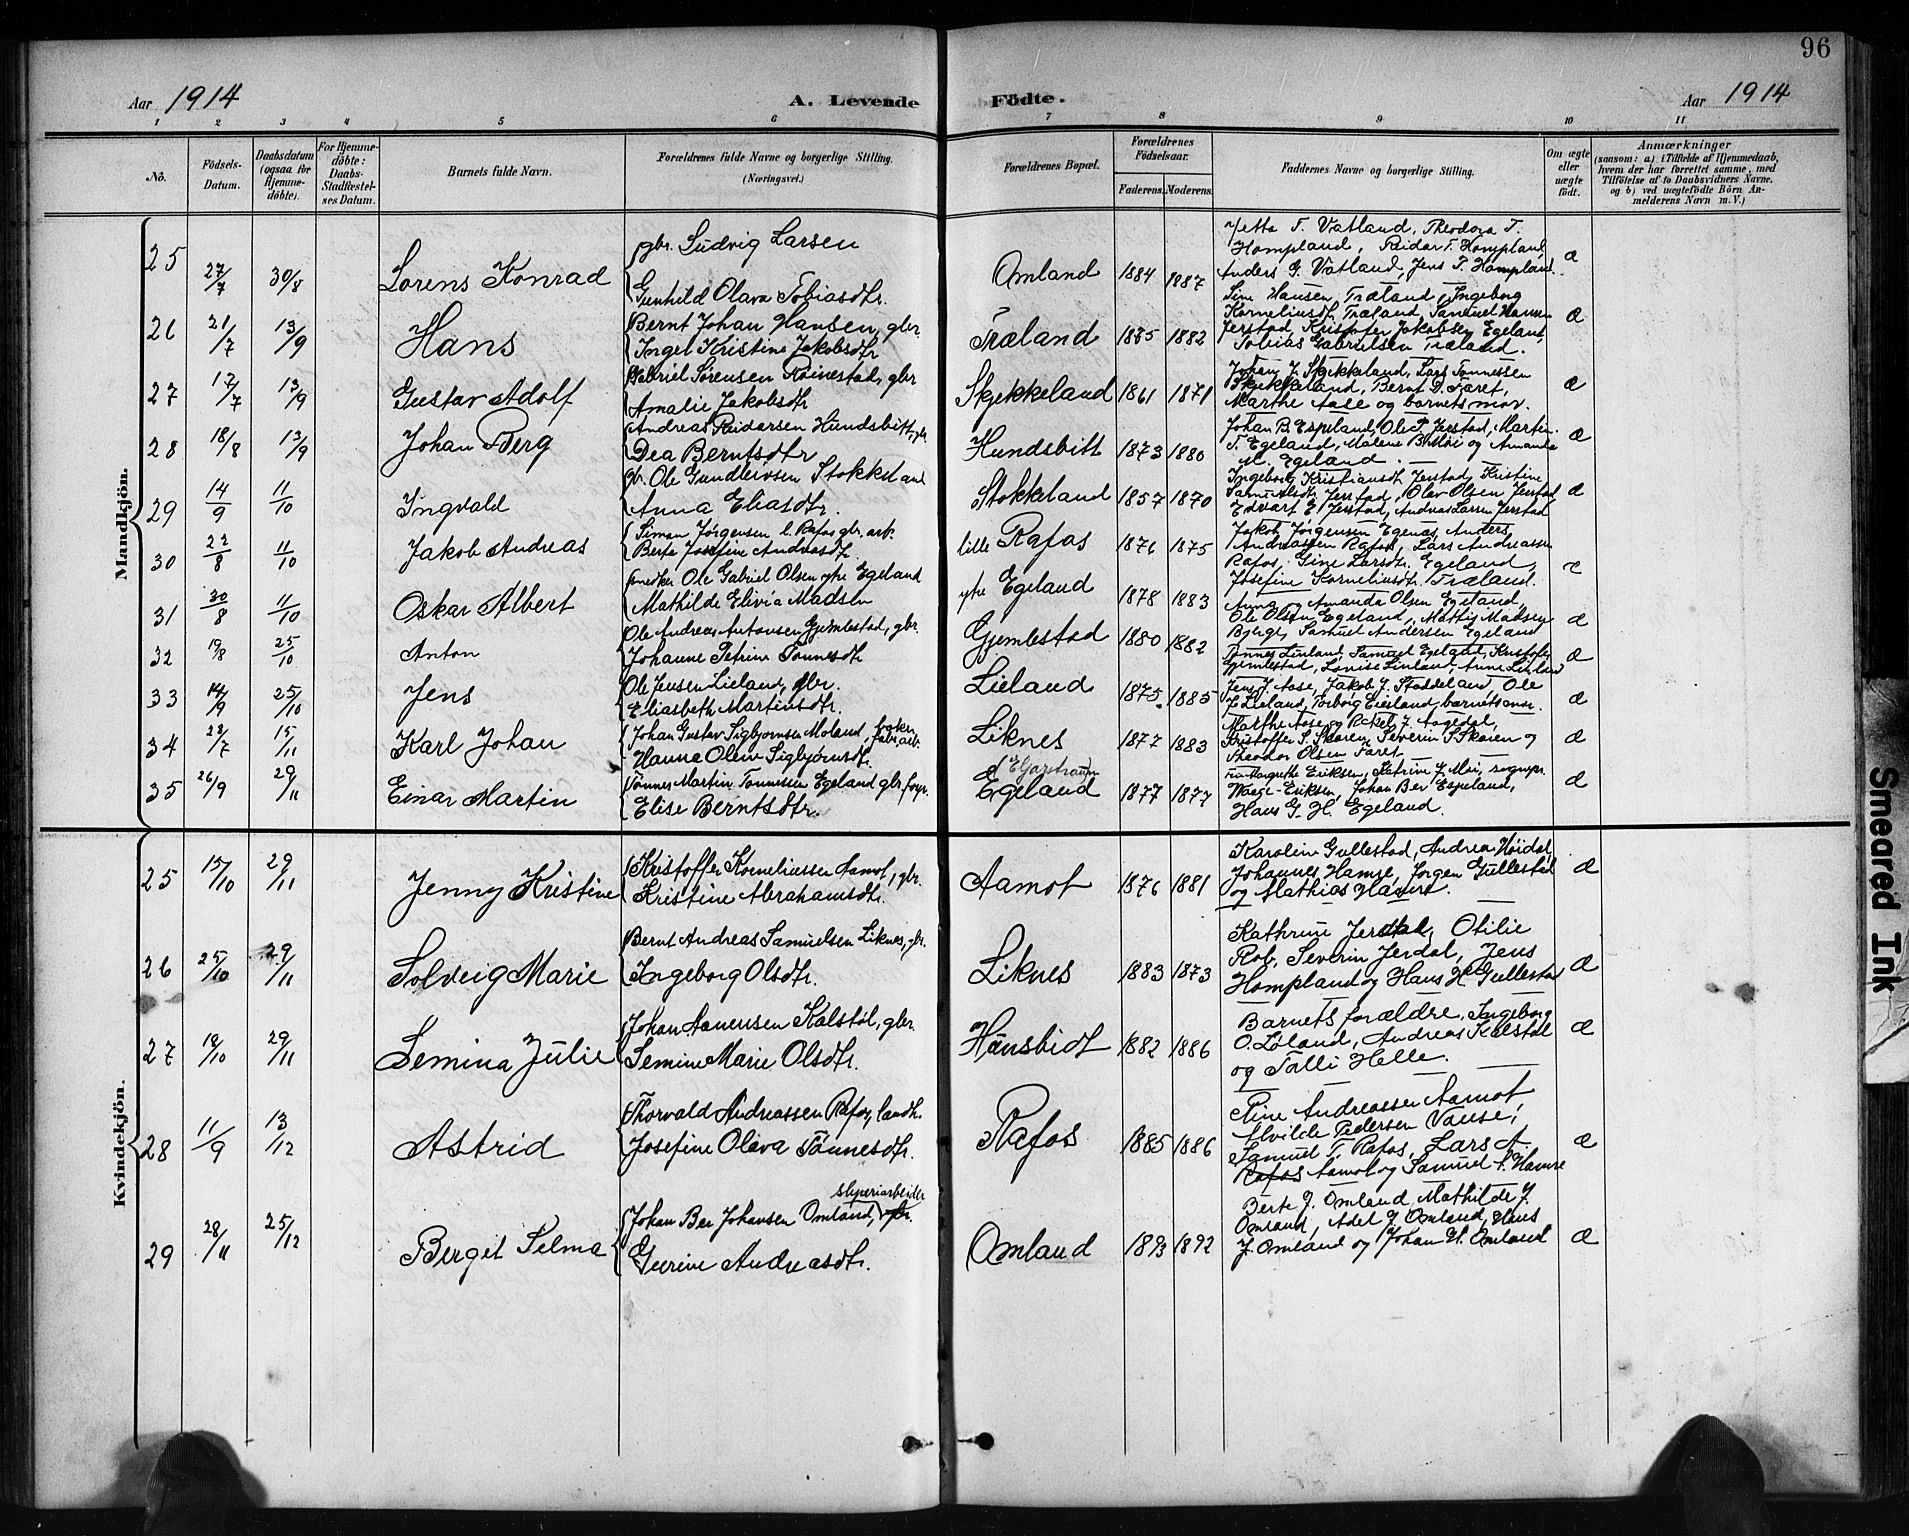 96
Aar 1914
A. Levende
Födte.
Aar 1914
1 2 3 4 5 6 7 8 9 10 11
No.
Födsels-
Datum.
Daabsdatum
(ogsaa for
Hjemme-
döbte).
For Hjemme-
döbte:
Daabs-
Stadfæstel-
ses Datum.
Barnets fulde Navn.
Forældrenes fulde Navne og borgerlige Stilling.
(Næringsvei.)
Forældrenes Bopæl.
Forældrenes
Födselsaar.
Faderens. Moderens.
Faddernes Navne og borgerlige Stilling.
Om ægte
eller
uægte
födt.
Anmærkninger
(saasom: a) i Tilfælde af Hjemmedaab,
hvem der har forrettet samme, med
Tilföielse af to Daabsvidners Navne,
og b) ved uægtefödte Börn An-
melderens Navn m. V.)
Mandkjön.
25 27/7 30/8 Lorens Konrad
gbr. Ludvig Larsen
Gunhild Olava Tobiasdtr.
Omland 1884 1887
T. Vatland, Theodora T.
Hompland, Reidar T. Hompland,
Anders G. Vatland, Jens T. Hompland.
æ
26 21/7 13/9 Hans
Bernt Johan Hansen, gbr.
Inget Kristine Jakobsdtr
Træland 1885 1882
Sine Hansen Træland, Ingeborg
Korneliusdtr Træland, Samuel Hansen
Jerstad, Kristofer Jakobsen Egeland,
Tobias Gabrielsen Træland.
æ
27 17/7 13/9 Gustav Adolf
Gabriel Sørensen Røinestad, gbr
Amalie Jakobsdtr
Skjekkeland 1861 1871
Johan J. Skjekkeland, Lars Tønnessen
Skjekkeland, Bernt D. Faret,
Marthe Aase og barnets mor.
æ
28 18/8 13/9 Johan Berg
Andreas Reidarsen Hundsbitt, gbr
Dea Berntsdtr
Hundsbitt 1873 1880
Johan B. Espeland, Ole T. Jerstad, Martin
T. Egeland, Malene og Amanda
M. Egeland.
æ
29 14/9 11/10 Ingvald
gbr. Ole Gundleivsen Stokkeland
Anna Eliasdtr.
Stokkeland 1857 1870
Ingeborg Kristiansdtr Jerstad, Kristine
Samuelsdtr Jerstad, Olav Olsen Jerstad
Edvart E. Jerstad, Andreas Larsen Jerstad
æ
30 22/8 11/10 Jakob Andreas
Simon Jørgensen l. Rafos gbr. arb.
Berte Josefine Andreasdtr.
lille Rafos 1876 1875
Jakob Jørgensen Egenes, Anders
Andreassen Rafos, Lars Andreassen
Rafos, Gine Larsdtr. Egeland,
Josefine Korneliusdtr. Træland.
æ
31 30/8 11/10 Oskar Albert
snedker Ole Gabriel Olsen ytre Egeland
Mathilde Elivia Madsen
ytre Egeland 1878 1883
Anna og Amanda Olsen Egeland,
Ole Olsen Egeland, Mattis Madsen
Bjerge, Samuel Andersen Egeland
æ
32 19/8 25/10 Anton
Ole Andreas Antonsen Gjemlestad, gbr.
Johanne Petrine Tønnesdtr
Gjemlestad 1880 1882
Tønnes Linland, Samuel Egeland, Kristofer
Gjemlestad, Lovise Linland, Anne Linland
æ
33 14/9 25/10 Jens
Ole Jensen Lieland, gbr.
Eliasbeth Martinsdtr.
Lieland 1875 1885
Jens J. Aase, Jakob J. Staddeland, Ole
J. Lieland, Torborg Eieland, barnets mor.
æ
34 28/7 15/11 Karl Johan
Johan Gustav Sigbjørnsen Moland, fabr. arb.
Hanna Oline Sigbjørnsdtr.
Liknes 1877 1883
Marthe Aase og Rakel J. Aagedal,
Kristoffer S. Skøren, Severin S. Skøren og
Theodor Olsen Faret
æ
35 26/9 29/11 Einar Martin
Tønnes Martin Tønnesen Egeland gbr.
Elise Berntsdtr.
Egeland 1877 1877
Fru Margrethe Eriksen, Petrine J. Moi, sognepr.
Waage-Eriksen, Johan Ber Espeland,
Hans G. H. Egeland.
æ
Kvindekjön.
25 15/10 29/11 Jenny Kristine
Kristoffer Korneliussen Aamot, gbr.
Kristine Abrahamsdtr.
Aamot 1876 1881
Karoline Gullestad, Andrea Høidal,
Johannes Hamre, Jørgen Gullestad
og Mathias Hamre.
æ
26 25/10 29/11 Solveig Marie
Bernt Andreas Samuelsen Liknes, gbr.
Ingeborg Olsdtr.
Liknes 1883 1873
Kathrine Jerdal, Otilie
Rob, Severin Jerdal, Jens
Hompland og Hans H. Gullestad
æ
27 18/10 29/11 Semina Julie
Johan Aanensen Kalstøl, gbr.
Semine Marie Olsdtr.
Hunsbidt 1882 1886
Barnets forældre, Ingeborg
O. Løland, Andreas Kalstøl
og Talli Helle.
æ
28 11/9 13/12 Astrid
Thorvald Andreassen Rafos, landh.
Josefine Olava Tønnesdtr.
Rafos 1885 1886
Rine Andreassen Aamot
Alvilde Pedersen Vanse,
Samuel T. Rafos, Lars A.
Rafos Aamot og Samuel S. Hamre
æ
29 28/11 25/12 Berget Selma
sliperiarbeider
Johan Ber Johansen Omland, gbr.
Geerine Andreasdtr.
Omland 1893 1892
Berte J. Omland, Mathilde J.
Omland, Adel J. Omland, Hans
J. Omland og Johan H. Omland
æ
Smeared Ink